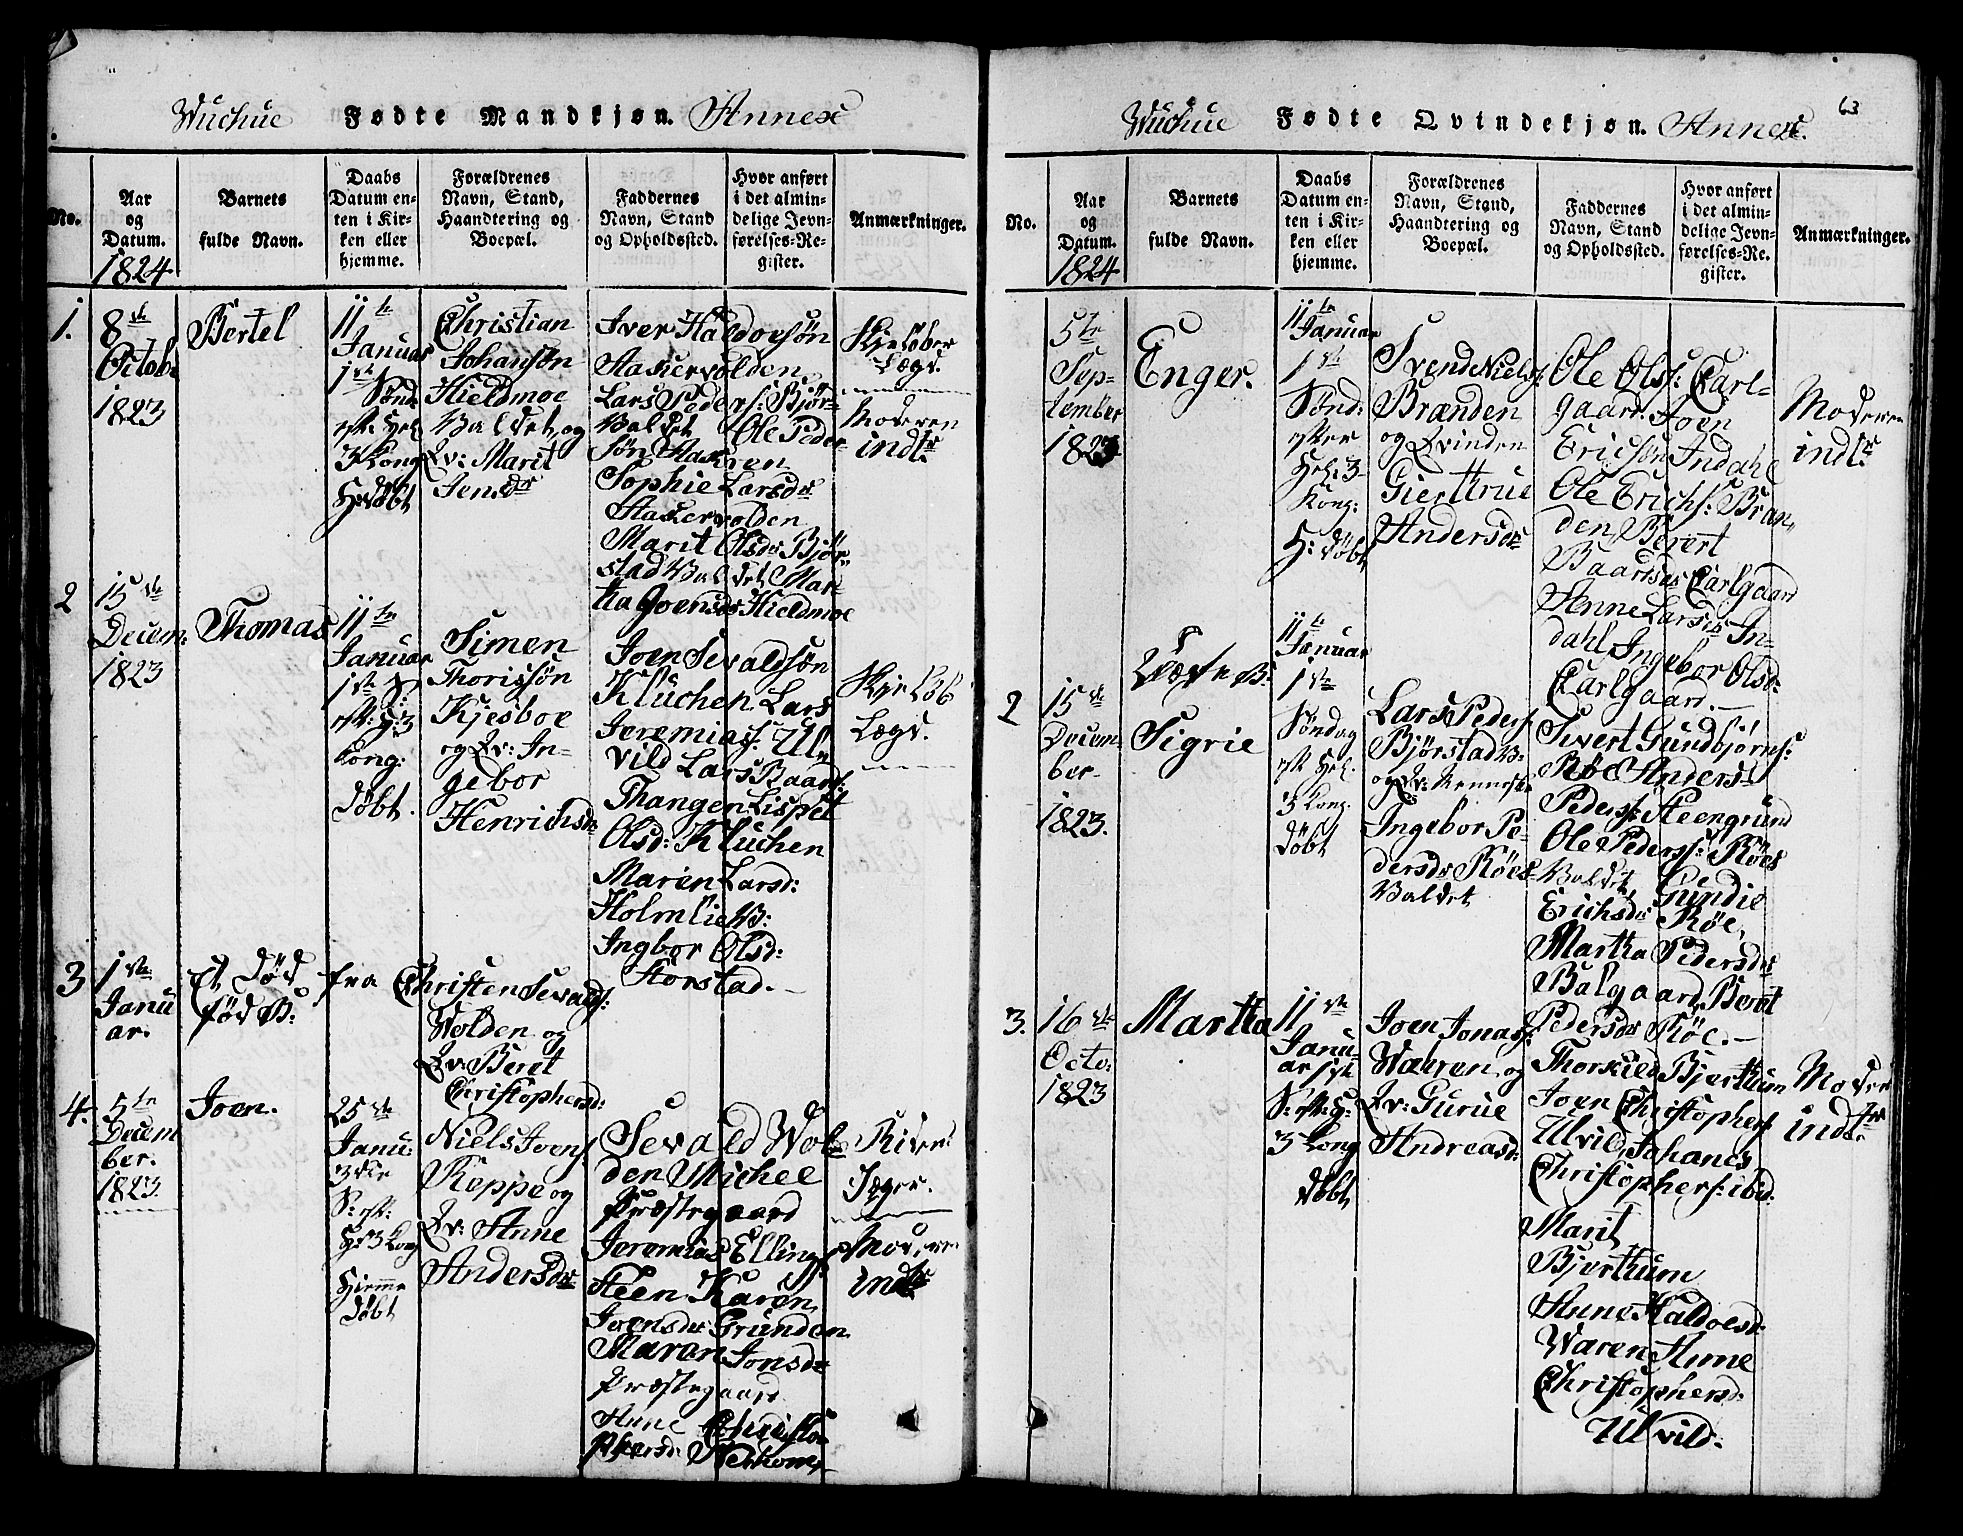 Wuchue Fødte Mandkjøn. Annex
No.
Aar og Datum.
1824
Barnets fulde Navn.
Daabs Datum enten i Kirken eller hjemme.
Forældrenes Navn, Stand, Haandtering og Boepæl.
Faddernes Navn, Stand og Opholdssted.
Hvor anført i det almindelige Jevnførelses-Register.
Anmærkninger.
1.
8de
Octob:
1823
Bertel
11te
Januar
1ste
Sønd:
eft: Hel
3 Kong
døbt
Christian
Johansøn
Hieldmoe
Valdet, og
Qv: Marit
Jensdr
Iver Haldorsøn
Aakervolden
Lars Peders: Bjør-
Valdet Ole Peder
søn Aakren
Sophie Larsdr
Aakervolden
Marit Olsdr Bjør-
stad Valdet Mar-
tha Joensdr Hieldmoe
Skieløber
Lægd.
Moderen
indt:
2
15de
Decem:
1823
Thomas
11te
Januar
1ste S:
eft: H: 3
Kong:
døbt.
Simen
Thorisøn
Kjesboe
og Qv: In-
gebor
Henrichsdr
Joen Sevaldsøn
Kluchen Lars
Jeremias: Ul-
vild Lars Baard:
Thangen Lispet
Olsd: Kluchen
Maren Larsd:
Holmlie V:
Ingbor Olsd:
Storstad.
Skieløb
Lægd.
3
1ste
Janu
ar.
et død
fød B:
fra
Christen Sevalds:
Wolden og
Qv: Beret
Christophersd:
4.
5te
Decem
ber.
1823
Joen.
25de
Janu:
3die
S: eft:
H: 3 Kong
Hjemme
døbt
Niels Joens:
Koppe og
Qv: Anne
Andersdr
Sevald Wol
den Michel
Præstegaard
Jeremias Ellings:
Steen Karen
Joensdr Grunden
Maren Jonsdr
Præstegaard
Anne Christo-
phersd:
Jæger.
Moderen
indt
Wuchue Fødte Qvindekjøn. Annex. 63
No.
Aar og Datum.
1824
Barnets fulde Navn.
Daabs Datum enten i Kirken eller hjemme.
Forældrenes Navn, Stand, Haandtering og Boepæl.
Faddernes Navn, Stand og Opholdssted.
Hvor anført i det almindelige Jevnførelses-Register.
Anmærkninger.
5te
Sep-
tember
1823
Enger.
11te
Januar
1ste
Sønd:
efter
Hel: 3
Kong:
H: døbt
Svend Niels:
Brænden
og Qvinden
Giertrue
Andersdr
Ole Ols: Carl-
gaard. Joen
Ericsøn Indahl
Ole Erichs: Bran
den Beret
Baardsdr Carlgaard
Anne Larsdr In-
dahl Ingebor Olsd:
Carlgaard.
Moderen
indt:
2
15de
Decem
ber
1823.
Sigrie
11te
Januar
1ste
Søndag
eft Hel.
3 Kong.
døbt
Lars Peders:
Bjørstad V:
Ingebor Pe-
dersdr Røes-
Valdet
Sivert Gundbjørns:
Røe Anders
Peders: Steengrund
Ole Peders: Røes
Valdet, Gundie
Erichsdr Røe,
Martha Pedersdr
Balgaard, Beret
Pedersdr Røe.
3.
16de
Octo:
1823
Martha
11te
Janu-
ar 1ste
S: eft: H:
3 Kong
døbt
Joen Jonas:
Waeren, og
Qv: Gurue
Andreasd:
Thorkild Bjerthum
Joen Christophers:
Ulvild, Johanes
Christophers: ibid:
Marit
Bjerthum
Anne Haldoesd:
Waren Anne
Christophersd:
Ulvild.
Moder
indt: